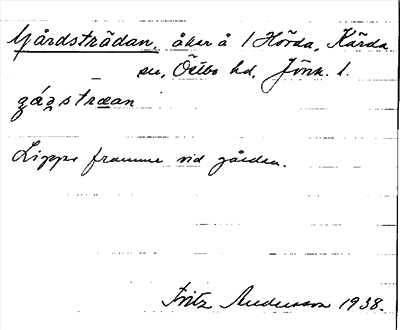 Gårdsträdan, åker å 1 Hörda, Kärda
sn, Östbo hd, Jönk. l.
gáɀstræan
Ligger framme vid gården.
Fritz Andersson 1938